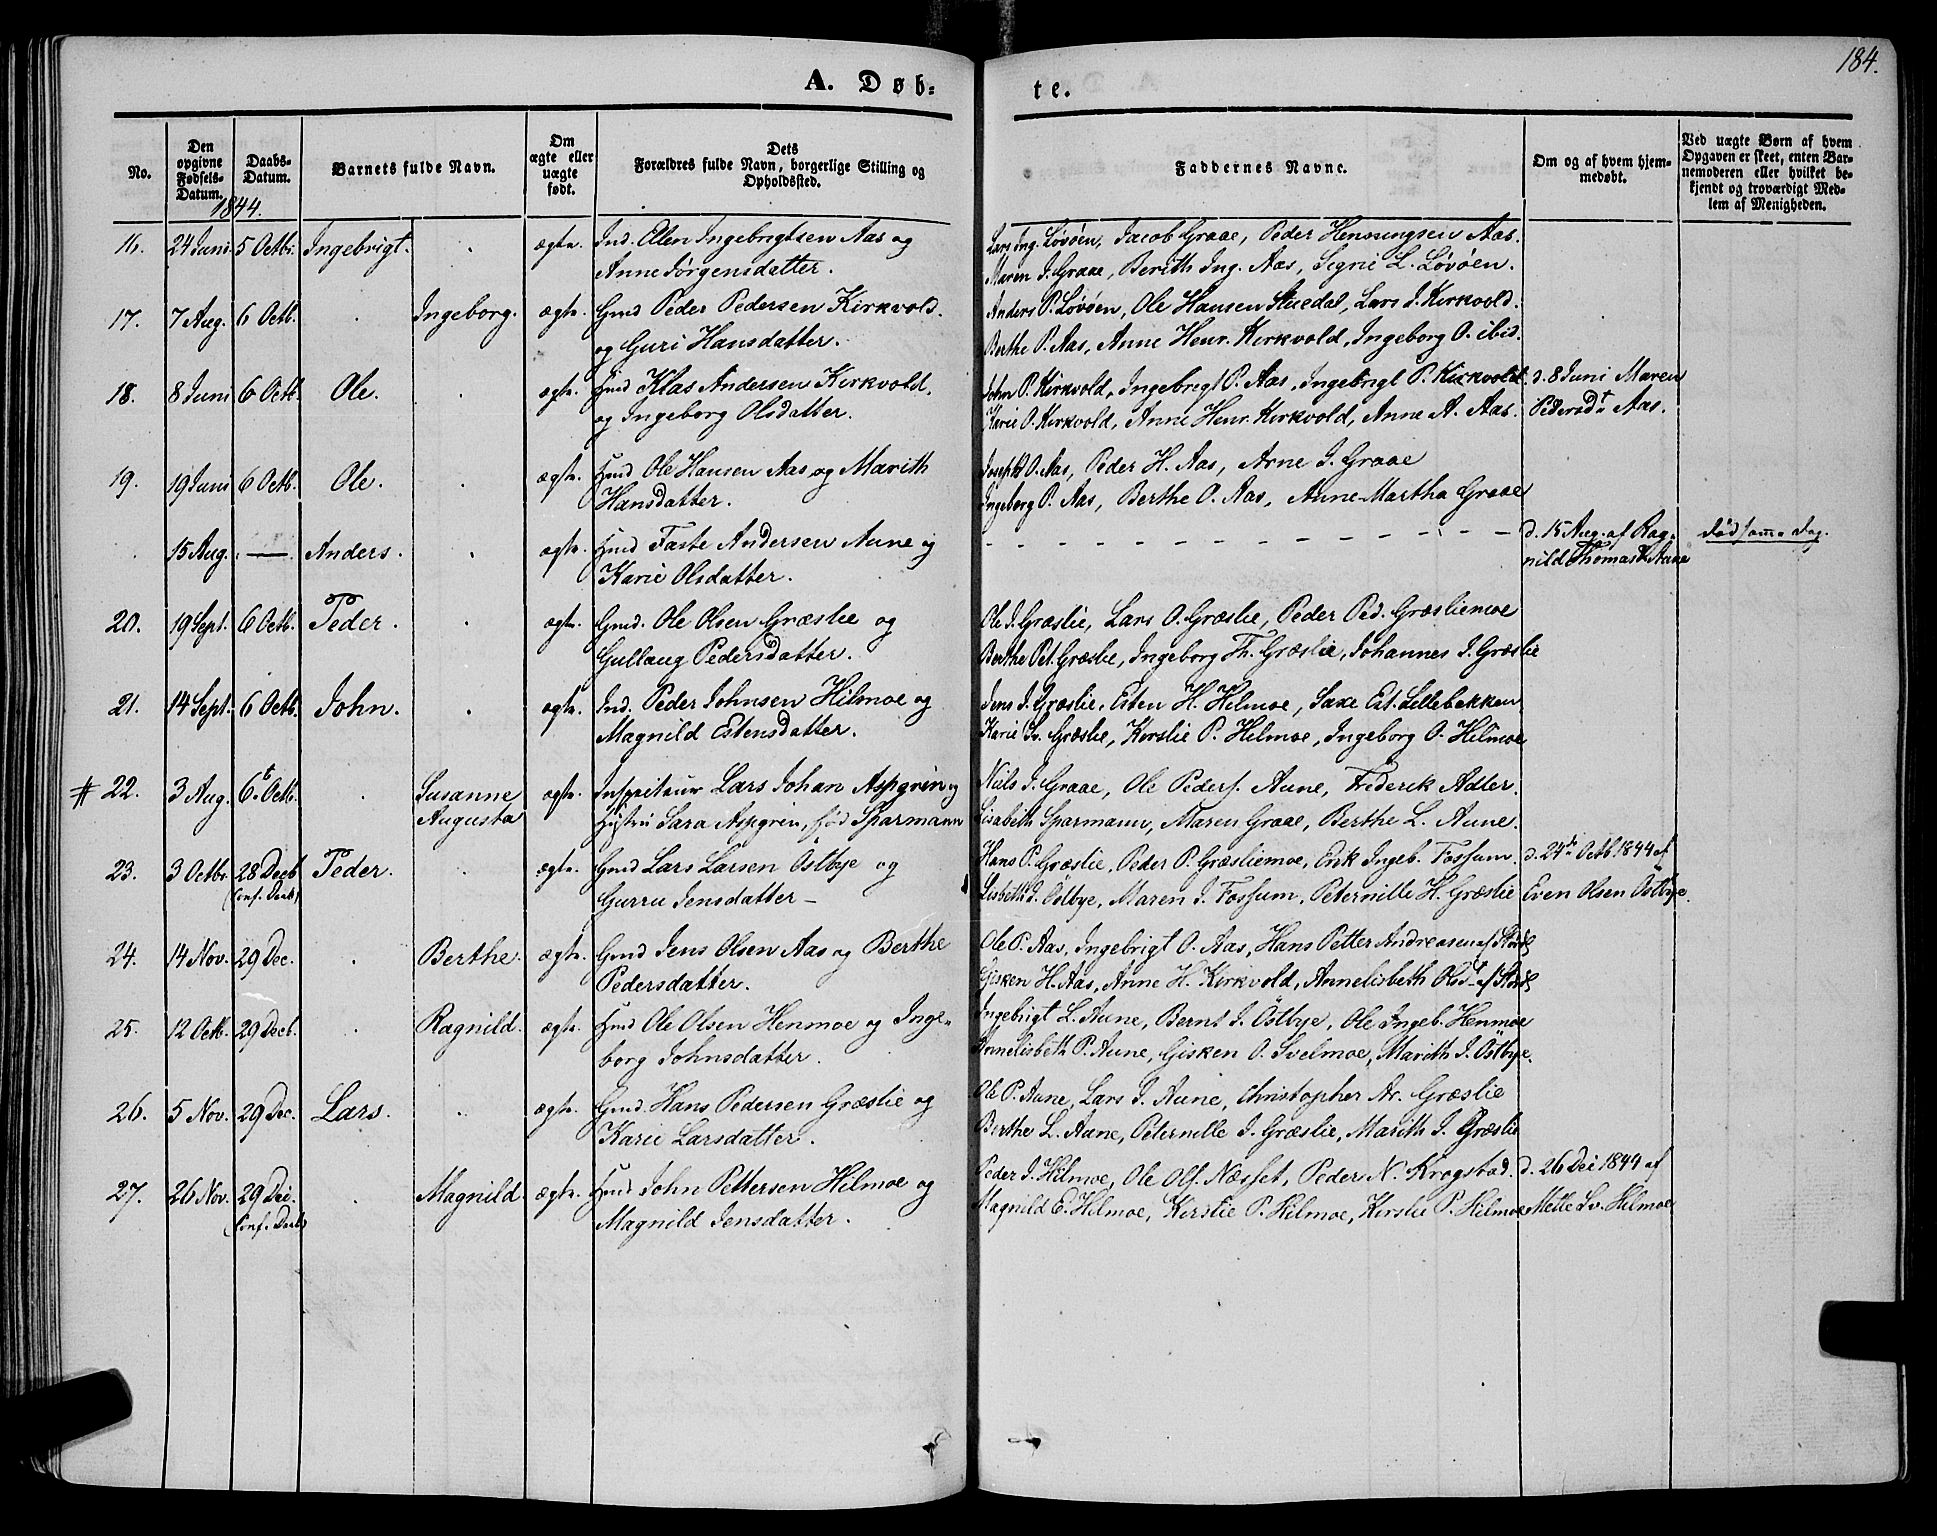 184.
A. Døb- te.
No.
Den opgivne Fødsels-Datum.
Daabs-Datum.
Barnets fulde Navn.
Om ægte eller uægte født.
Dets Forældres fulde Navn, borgerlige Stilling og Opholdssted.
Faddernes Navne.
Om og af hvem hjemmedøbt.
Ved uægte Børn af hvem Opgaven er skeet, enten Barnemoderen eller hvilket bekjendt og troværdigt Medlem af Menigheden.
1844.
16. 24 Juni 5 Octbr. Ingebrigt. ægte. Ind. Elen Ingebrigtsen Aas og Lars Ing. Løvøen, Jacob Graae, Peder Henningsen Aas.
Anne Jørgensdatter. Maren J. Graae, Berith Ing. Aas, Sigrie L. Løvøen.
17. 7 Aug. 6 Octb. Ingeborg. ægte. Gmd Peder Pedersen Kirkvold. Anders P. Løvøen, Ole Hansen Stuedal, Lars J. Kirkvold.
og Guri Hansdatter. Berthe P. Aas, Anne Henr. Kirkvold, Ingeborg O. ibid.
18. 8 Juni 6 Octb. Ole. ægte. Hmd Klas Andersen Kirkvold, John P. Kirkvold, Ingebrigt P. Aas, Ingebrigt P. Kirkvold. d. 8 Juni Maren
og Ingeborg Olsdatter. Karie O. Kirkvold, Anne Henr. Kirkvold, Anne A. Aas. Pedersdt Aas.
19. 19 Juni 6 Octb. Ole. ægte. Hmd Ole Hansen Aas og Marith Joseph O. Aas, Peder H. Aas, Arne J. Graae
Hansdatter. Ingeborg P. Aas, Berthe O. Aas, Anne-Martha Graae
15 Aug. — Anders. ægte. Hmd Faste Andersen Aune og - - - - - - - - - - - - - d. 15 Aug. af Rag- død samme dag.
Karie Olsdatter. nild Thomasdt Aune
20. 19 Sept. 6 Octb. Peder. ægte. Gmd. Ole Olsen Græslie og Ole J. Græslie, Lars O. Græslie, Peder Ped. Græsliemoe
Gullaug Pedersdatter. Berthe Pet. Græslie, Ingeborg Th. Græslie, Johannes J. Græslie
21. 14 Sept. 6 Octb. John. ægte. Ind. Peder Johnsen Hilmoe og Jens J. Græslie, Esten H. Hilmoe, Saxe Est. Lillebekken
Magnild Estensdatter. Karie Sv. Græslie, Kirstie P. Hilmoe, Ingeborg O. Hilmoe
# 22. 3 Aug. 6t Octb. Susanne ægte. Inspecteur Lars Johan Aspgrin og Niels J. Graae, Ole Peders. Aune, Frederik Adler.
Augusta Hustru Sara Aspgrin, fød Sparmann Lisabeth Sparmann, Maren Graae, Berthe L. Aune.
23. 3 Octbr. 28 Decb. Peder. ægte. Gmd Lars Larsen Östbye og Hans P. Græslie, Peder P. Græsliemoe, Erik Ingeb. Fossum. d. 24de Octb 1844 af
(Conf. Daab) Gurru Jensdatter – Lisbeth J. Östbye, Maren J. Fossum, Peternille H. Græslie Even Olsen Östbye.
24. 14 Nov. 29 Dec. Berthe. ægte. Gmd Jens Olsen Aas og Berthe Ole P. Aas, Ingebrigt O. Aas, Hans Petter Andreasen af
Pedersdatter. Gisken H. Aas, Anne H. Kirkvold, Annelisbeth Olsdt af
25. 12 Octb. 29 Decb. Ragnild. ægte. Hmd Ole Olsen Henmoe og Inge- Ingebrigt L. Aune, Bernt J. Östbye, Ole Ingeb. Henmoe
borg Johnsdatter. Annelisbeth P. Aune, Gisken O. Svelmoe, Marith J. Östbye.
26. 5 Nov. 29 Dec. Lars. ægte. Gmd. Hans Pedersen Græslie og Ole P. Aune, Lars J. Aune, Christopher Ar. Græslie
Karie Larsdatter. Berthe L. Aune, Peternille J. Græslie, Marith J. Græslie
27. 26 Nov. 29 Dec. Magnild. ægte. Hmd John Pettersen Hilmoe og Peder J. Hilmoe, Ole Ols. Næsset, Peder N. Krogstad. d. 26 Dec 1844 af
(Conf. Daab) Magnild Jensdatter. Magnild E. Hilmoe, Kirstie P. Hilmoe, Kirstie P. Hilmoe Mette Sv. Hilmoe